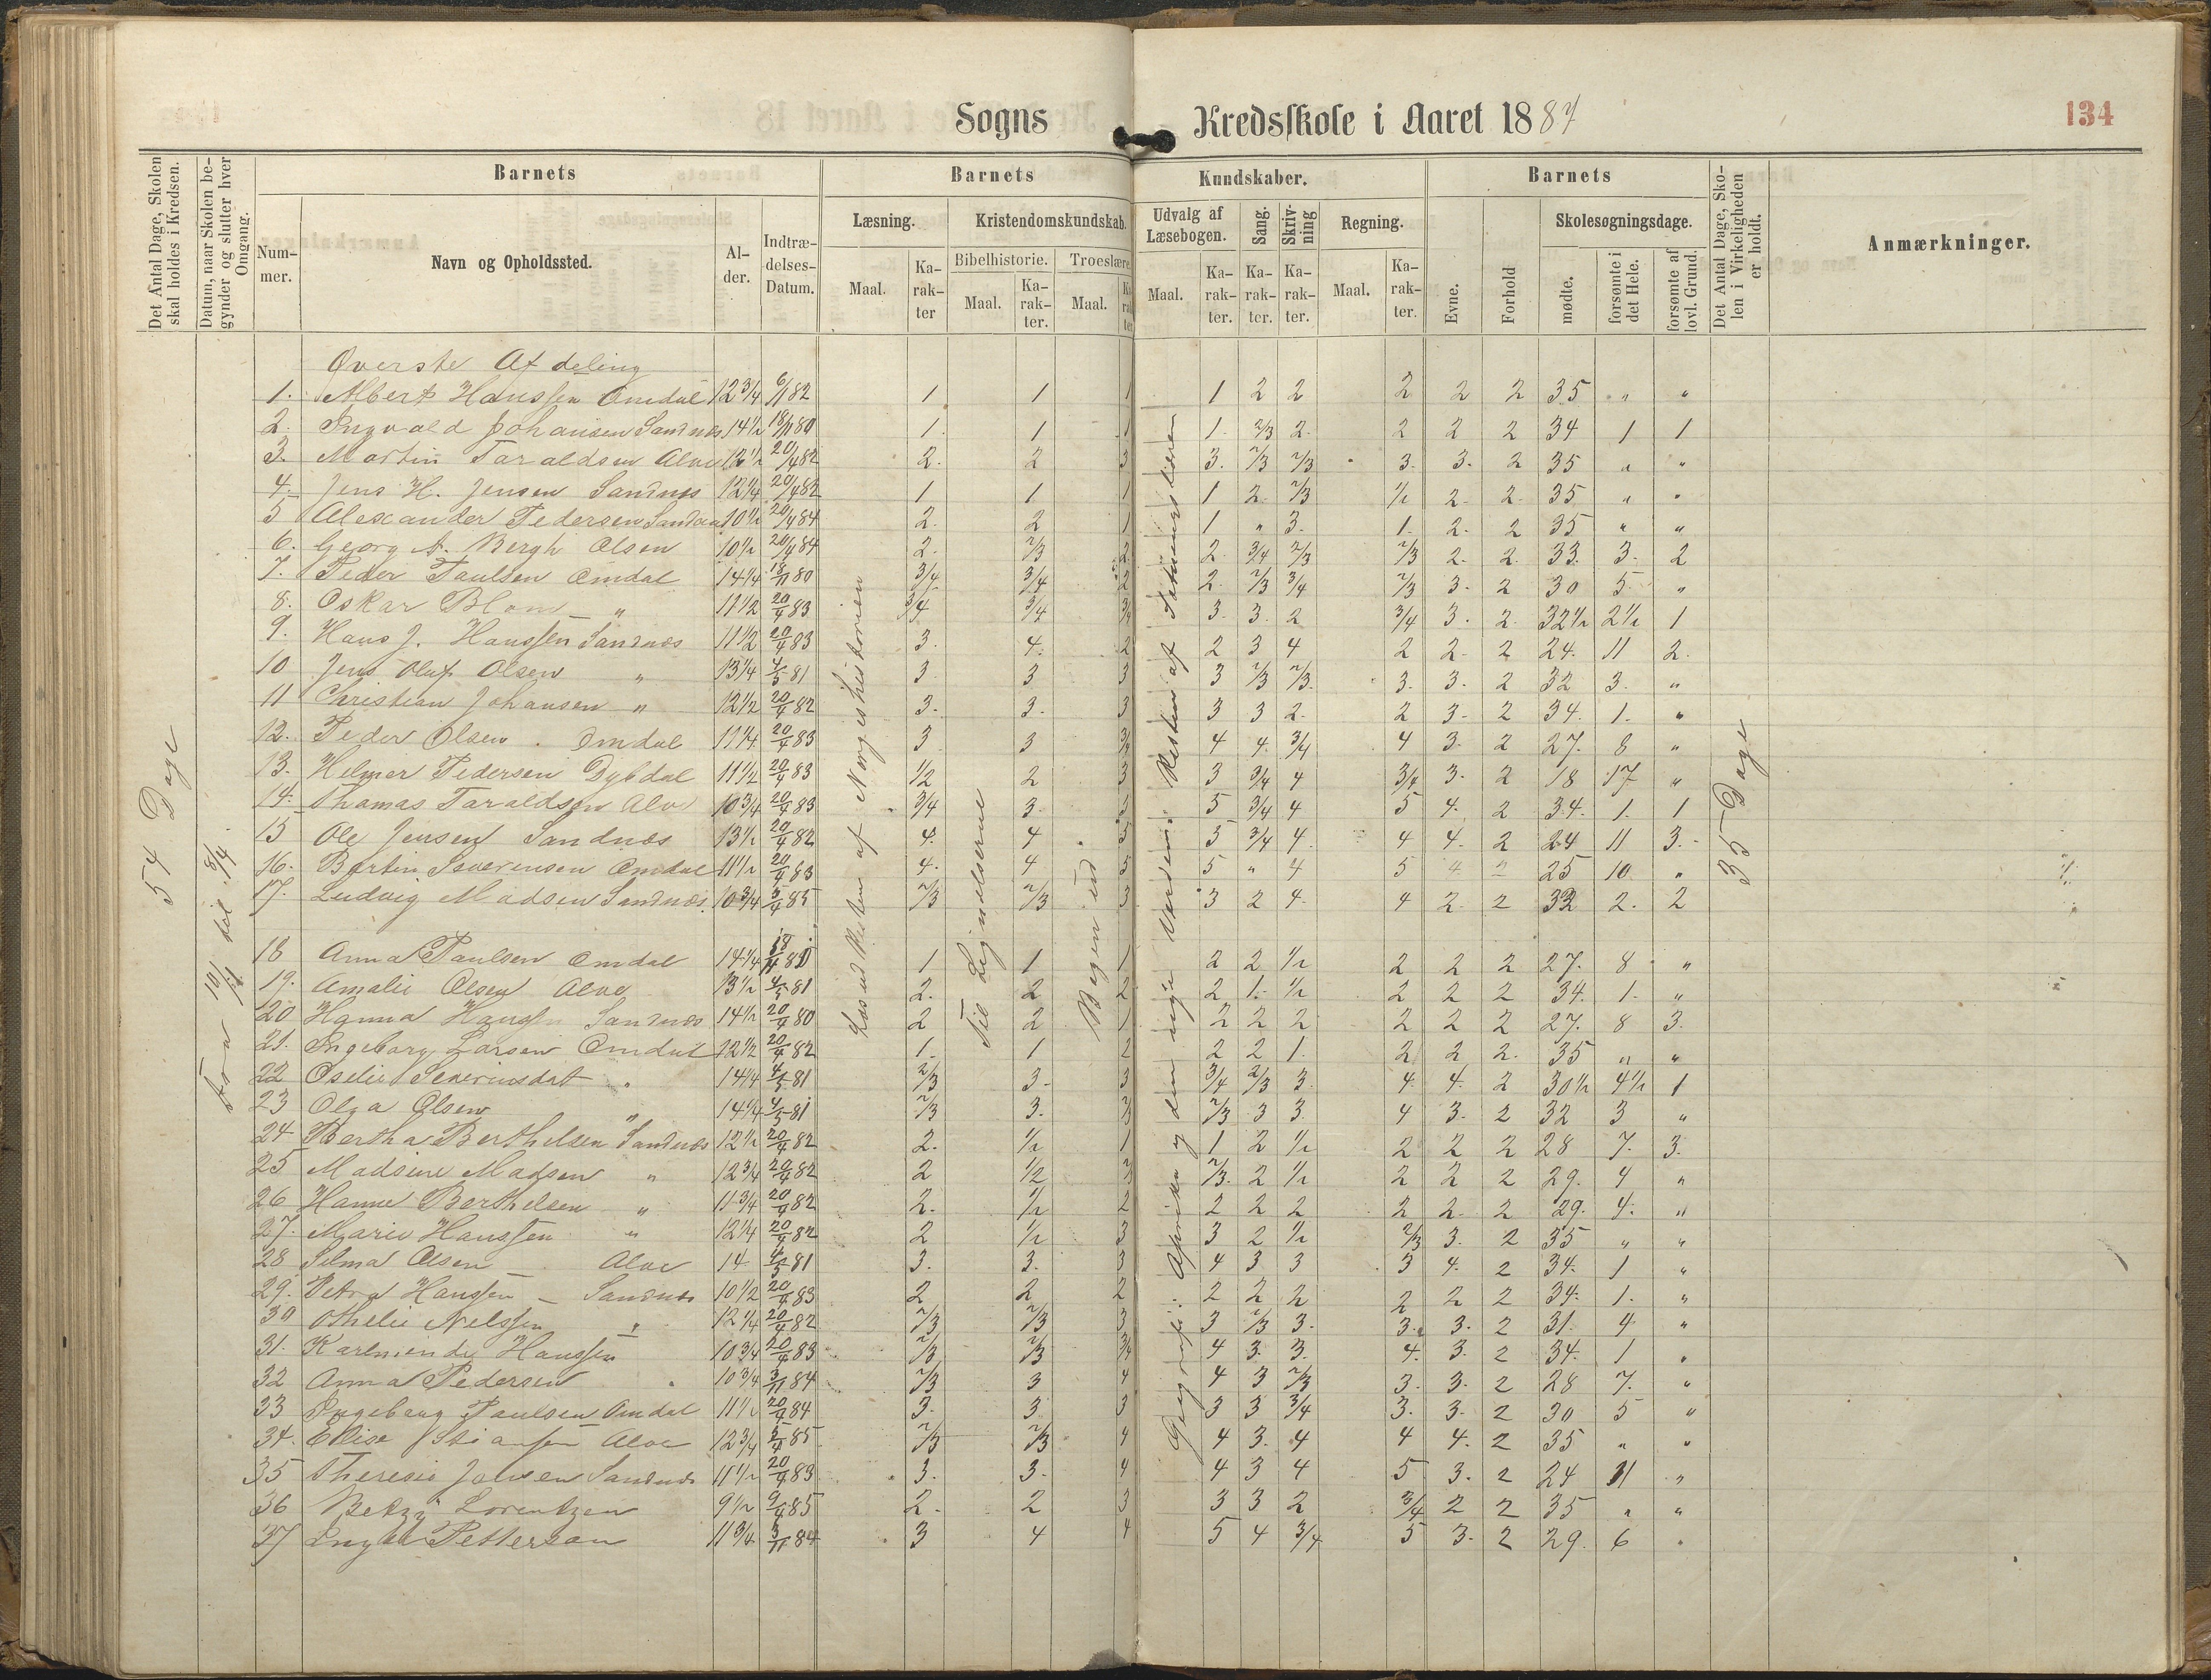 Sogns Kredsskole i Aaret 1887
134
Det Antal Dage, Skolen skal holdes i Kredsen.
Datum, naar Skolen begynder og slutter hver Omgang.
Barnets
Barnets
Kundskaber.
Barnets
Det Antal Dage, Skolen i Virkeligheden er holdt.
Anmærkninger.
Nummer.
Navn og Opholdssted.
Alder.
Indtrædelses-Datum.
Læsning.
Kristendomskundskab.
Udvalg af Læsebogen.
Sang.
Skrivning
Regning.
Evne.
Forhold
Skolesøgningsdage.
Bibelhistorie.
Troeslære.
Maal.
Karakter
Maal.
Karakter.
Maal.
Karakter.
Maal.
Karakter.
Karakter.
Karakter.
Maal.
Karakter.
mødte.
forsømte i det Hele.
forsømte af lovl. Grund.
54 Dage
Fra 10/11 til 8/4.
Læst Resten af Norgeshistorien
Til Lignelserne
Bogen ud
Geografi: Afrika og den nye Verden. Resten af
35 Dage
Øverste Afdeling
1. Albert Hanssen Omdal 12 3/4 6/11 82 1 1 1 1 2 2 2 2 2 35 " "
2. Ingvald Johansen Sandnes 14 1/2 18/11 80 1 1 1 1 2/3 2 2 2 2 34 1 1
3. Martin Taraldsen Alve 12 1/2 20/4 82 2 2 3 3 2/3 2/3 3 3 2 35 " "
4. Jens H. Jensen Sandnes 12 1/4 20/4 82 1 1 1 1 2 2/3 1/2 2 2 35 " "
5 Alexander Pedersen Sandnes 10 1/2 20/4 84 2 2 1 1 " 3 1 2 2 35 " "
6. Georg A. Bergh Olsen 10 1/2 20/4 84 2 2/3 2 2 3/4 2/3 2/3 2 2 33 3 2
7. Peder Paulsen Omdal 14 1/4 18/11 80 3/4 3/4 2 2 2/3 3/4 2/3 3 2 30 5 "
8. Oskar Blom " 11 1/2 20/4 83 3/4 3/4 3/4 3 3 2 3/4 3 2 32 1/2 2 1/2 1
9. Hans J. Hanssen Sandnes 11 1/2 20/4 83 3 4 2 2 3 4 2 2 2 24 11 2
10 Jens Oluf Olsen " 13 1/4 4/5 81 3 3 3 3 2/3 2/3 3 3 2 32 3 "
11 Christian Johansen " 12 1/2 20/4 82 3 3 3 3 3 2 2 3 2 34 1 "
12. Peder Olsen Omdal 11 1/4 20/4 83 3 3 3/4 4 4 3/4 4 3 2 27 8 "
13. Helmer Pedersen Dybdal 11 1/2 20/4 83 1/2 2 3 3 3/4 4 3/4 3 2 18 17 "
14. Thomas Taraldsen Alve 10 3/4 20/4 83 3/4 3 3 5 3/4 4 5 4 2 34 1 1
15 Ole Jensen Sandnes 13 1/2 20/4 82 4 4 5 5 3/4 4 4 4 2 24 11 3
16. Bertin Severinsen Omdal 11 1/2 20/4 83 4 4 5 5 " 4 5 4 2 25 10 "
17. Ludvig Madsen Sandnes 10 3/4 5/4 85 2/3 2/3 3 3 2 4 4 2 2 33 2 2
18 Anna Paulsen Omdal 14 1/4 18/11 80 1 1 1 2 2 1/2 2 2 2 27 8 "
19. Amalie Olsen Alve 13 1/2 4/5 81 2 2 2 2 1 1/2 2 2 2 34 1 "
20 Hanna Hanssen Sandnes 14 1/2 20/4 80 2 2 1 2 2 2 2 2 2 27 8 3
21. Ingeborg Larsen Omdal 12 1/2 20/4 82 1 1 2 2 2 1 2 2 2 35 " "
22 Oselie Severinsdat " 14 1/4 4/5 81 2/3 3 3 3/4 2/3 3 4 4 2 30 1/2 4 1/2 1
23 Olga Olsen " 14 1/4 4/5 81 2/3 3 2/3 2/3 3 3 4 3 2 32 3 "
24 Bertha Berthelsen Sandnes 12 1/2 20/4 82 2 1/2 1 1 2 1/2 2 2 2 28 7 3
25 Madsine Madsen " 12 3/4 20/4 82 2 1/2 2/3 2/3 2 1/2 2 2 2 29 4 "
26 Hanne Berthelsen " 11 3/4 20/4 82 2 1/2 2 2 2 2 2 2 2 29 4 "
27. Marie Hanssen " 12 1/4 20/4 82 2 1/2 3 3 2 1/2 2/3 3 2 35 " "
28 Selma Olsen Alve 14 4/5 81 3 3 3 4 3 3 3 4 2 34 1 "
29. Petra Hanssen Sandnes 10 1/2 20/4 83 2 2 2 2 2 2 2 2 2 34 1 "
30 Othelie Nelssen " 12 1/4 20/4 82 2/3 2/3 3 3 2/3 3 3 3 2 31 4 "
31. Karlminde Hanssen 10 3/4 20/4 83 2/3 2/3 3/4 4 3 3 4 3 2 34 1 "
32 Anna Pedersen " 10 3/4 3/11 84 2/3 3 4 4 3 2/3 3 3 2 28 7 "
33 Ingeborg Paulsen Omdal 11 1/2 20/4 84 3 3 3 3 3 3/4 3 3 2 30 5 "
34. Ellise Stiansen Alve 12 3/4 5/4 85 2/3 2/3 4 4 3 4 4 4 2 35 " "
35 Theresie Jensen Sandnes 11 1/2 20/4 83 3 3 4 4 3 4 5 3 2 24 11 "
36 Betzy Lorentzen 9 1/2 9/4 85 2 2 3 3 3 2 3/4 2 2 35 " "
37 Petterson 11 3/4 3/11 84 3 4 4 5 4 3/4 5 3 2 29 6 "